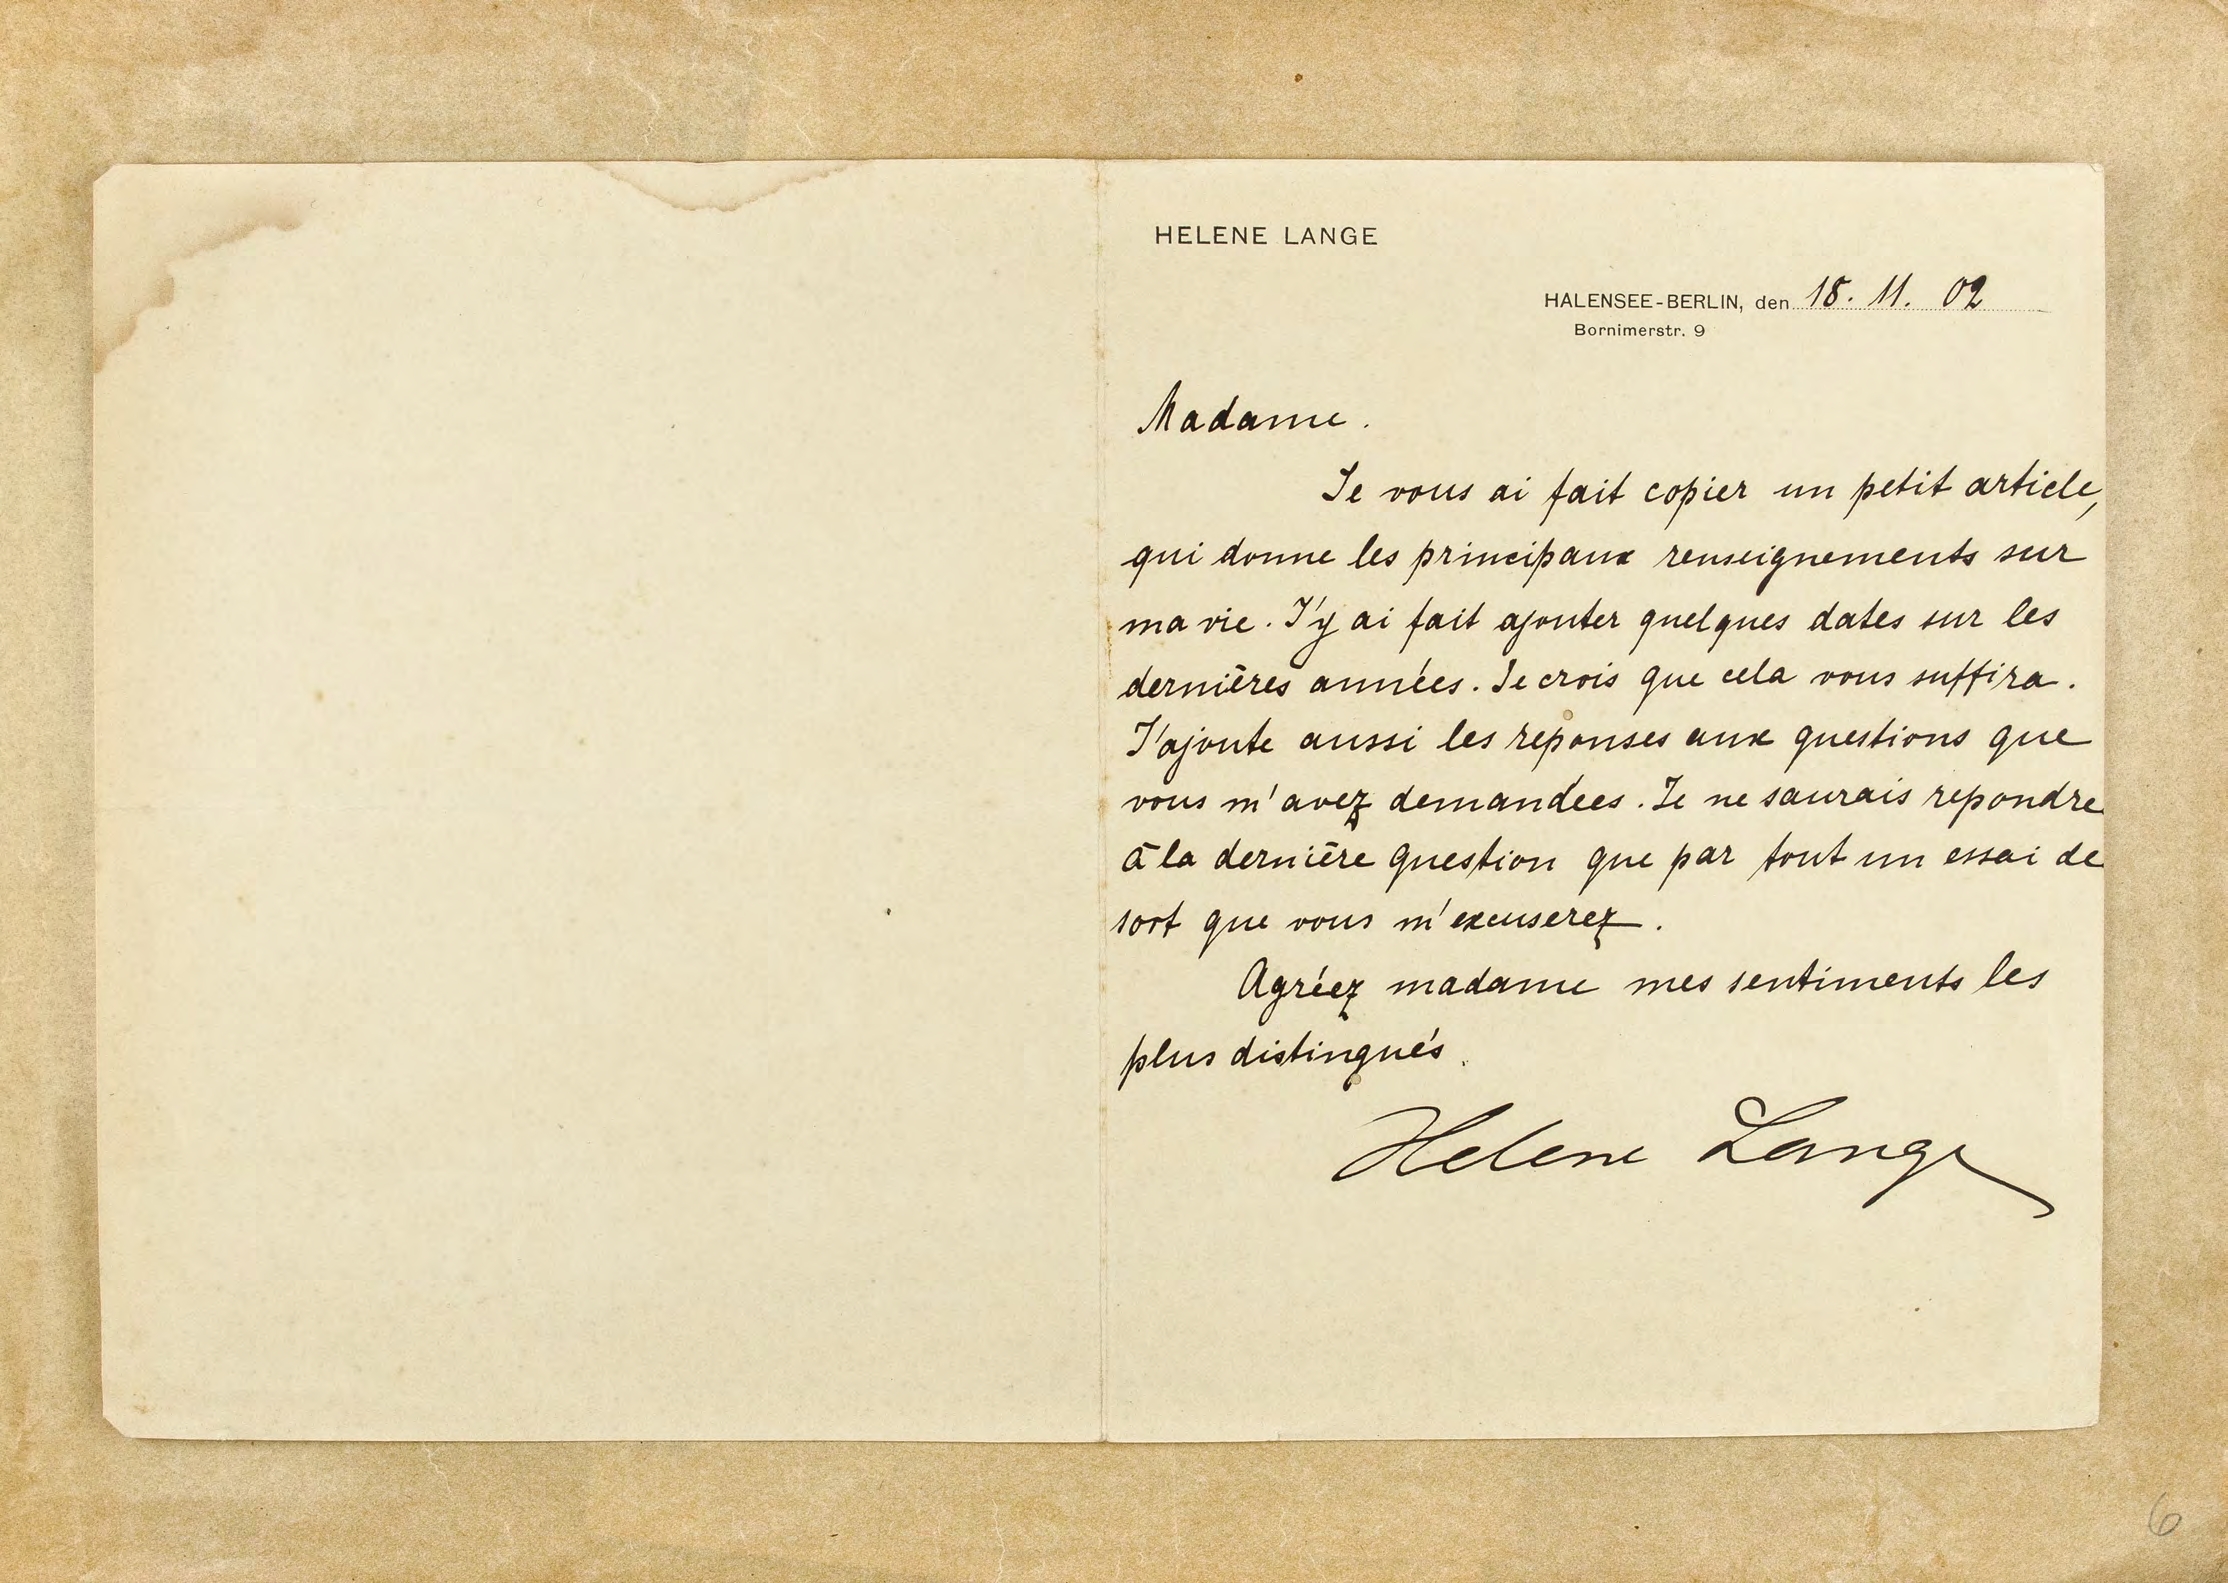 HELENE LANGE
HALENSEE-BERLIN, den 18. 11. 02
Bornimerstr. 9
Madame.
Je vous ai fait copier un petit article,
qui donne les principaux renseignements sur
ma vie. J'y ai fait ajouter quelques dates sur les
dernières années. Je crois que cela vous suffira.
J'ajoute aussi les reponses aux questions que
vous m'avez demandees. Je ne saurais repondre
à la dernière question que par tout un essai de
sort que vous m'excuserez.
Agréez madame mes sentiments les
plus distingués.
Helene Lange
6